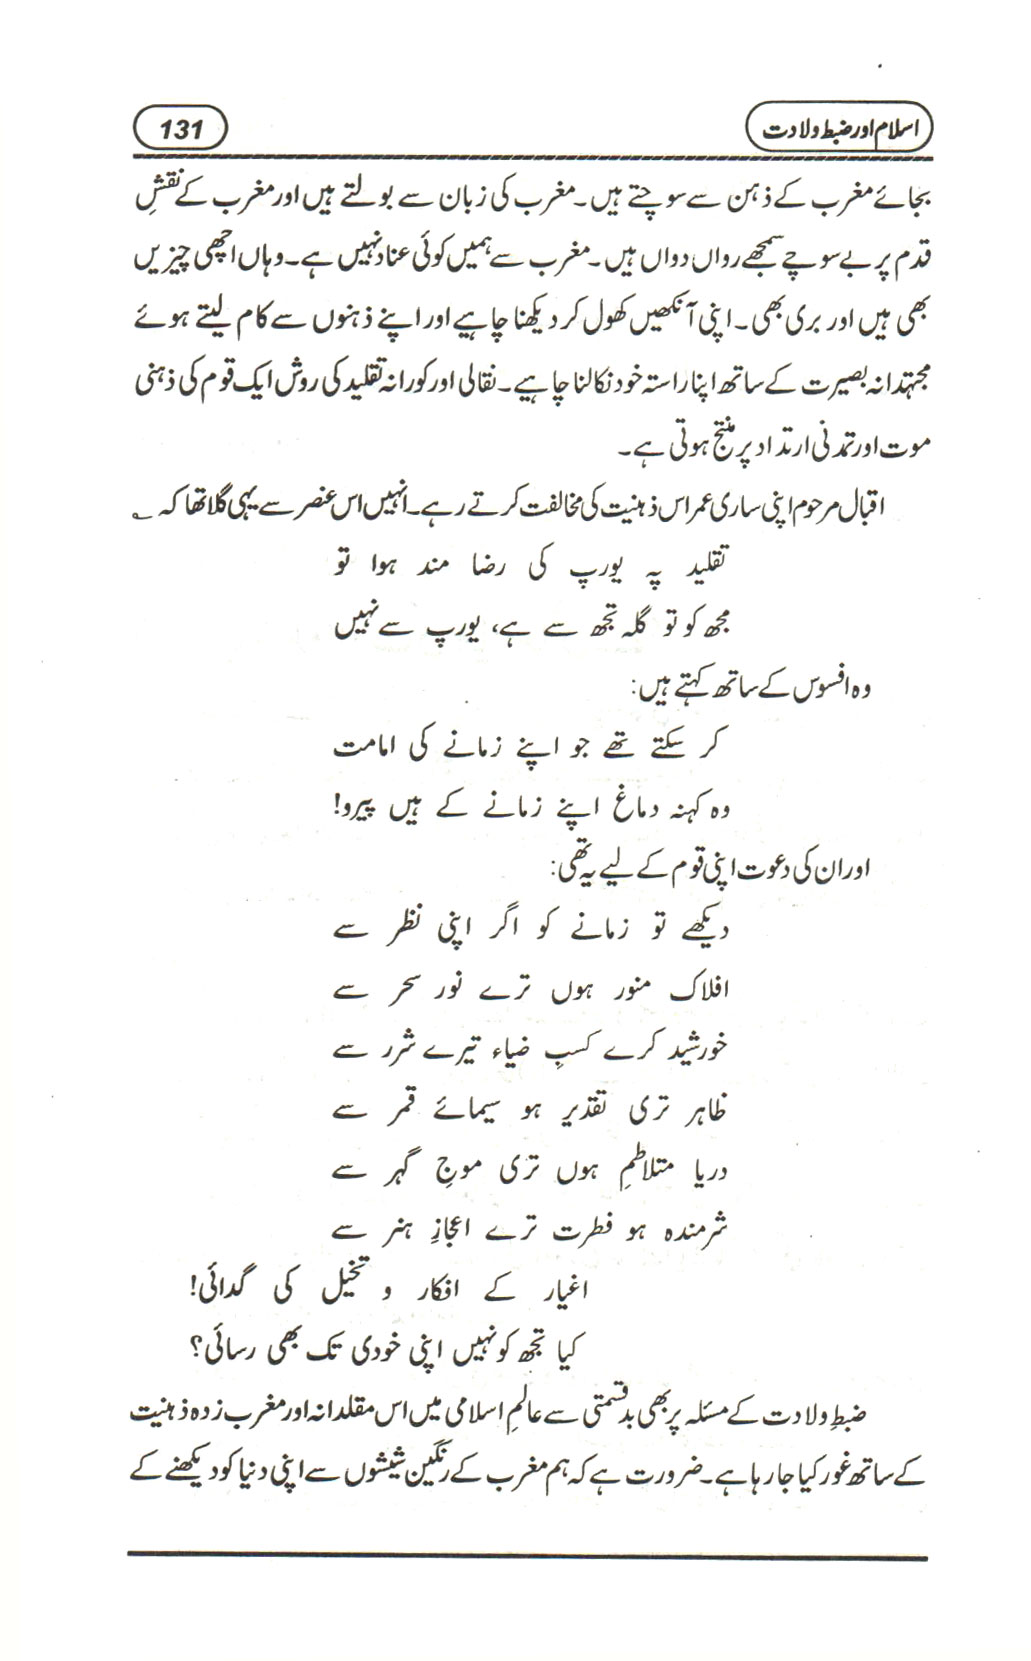 اسلام اور ضبط ولادت
131
بجائے مغرب کے ذہن سے سوچتے ہیں۔ مغرب کی زبان سے بولتے ہیں اور مغرب کے نقشِ
قدم پر بے سوچے سمجھے رواں دواں ہیں۔ مغرب سے ہمیں کوئی عناد نہیں ہے۔ وہاں اچھی چیزیں
بھی ہیں اور بری بھی۔ اپنی آنکھیں کھول کر دیکھنا چاہیے اور اپنے ذہنوں سے کام لیتے ہوئے
مجتہدانہ بصیرت کے ساتھ اپنا راستہ خود نکالنا چاہیے۔ نقالی اور کورانہ تقلید کی روش ایک قوم کی ذہنی
موت اور تمدنی ارتداد پر منتج ہوتی ہے۔
اقبال مرحوم اپنی ساری عمر اس ذہنیت کی مخالفت کرتے رہے۔ انہیں اس عنصر سے یہی گلا تھا کہ ؎
تقلید پہ یورپ کی رضا مند ہوا تو
مجھ کو تو گلہ تجھ سے ہے، یورپ سے نہیں
وہ افسوس کے ساتھ کہتے ہیں:
کر سکتے تھے جو اپنے زمانے کی امامت
وہ کہنہ دماغ اپنے زمانے کے ہیں پیرو!
اور ان کی دعوت اپنی قوم کے لیے یہ تھی:
دیکھے تو زمانے کو اگر اپنی نظر سے
افلاک منور ہوں ترے نور سحر سے
خورشید کرے کسبِ ضیاء تیرے شرر سے
ظاہر تری تقدیر ہو سیمائے قمر سے
دریا متلاطم ہوں تری موجِ گہر سے
شرمندہ ہو فطرت ترے اعجازِ ہنر سے
اغیار کے افکار و تخیل کی گدائی!
کیا تجھ کو نہیں اپنی خودی تک بھی رسائی؟
ضبطِ ولادت کے مسئلہ پر بھی بدقسمتی سے عالمِ اسلامی میں اس مقلدانہ اور مغرب زدہ ذہنیت
کے ساتھ غور کیا جا رہا ہے۔ ضرورت ہے کہ ہم مغرب کے رنگین شیشوں سے اپنی دنیا کو دیکھنے کے